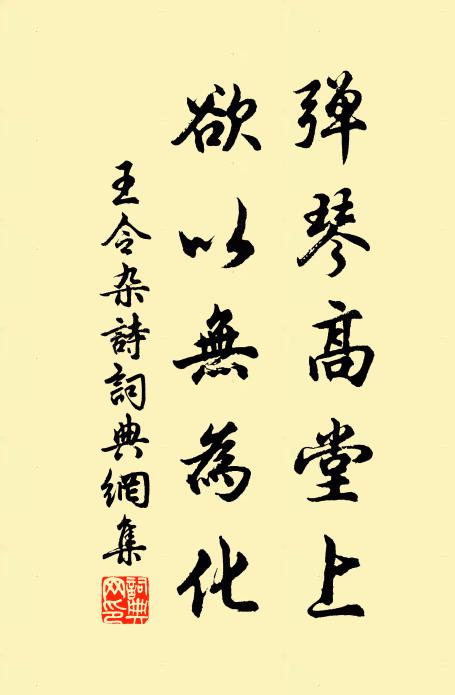 弹琴高堂上
欲以無為化
王令杂詩詞典網集
詞典網印